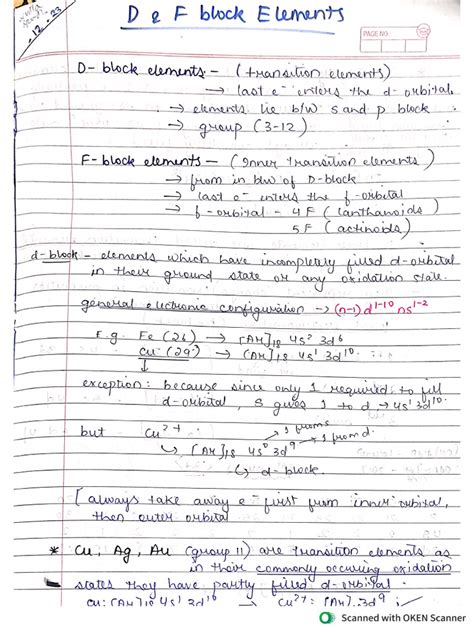 D & F block Elements
.12.23
PAGE NO.
D-block elements - (transition elements)
→ last e⁻ enters the d-orbital.
→ elements lie b/w s and p block
→ group (3-12)
F-block elements - (Inner transition elements)
→ from in b/w of D-block
→ last e⁻ enters the f-orbital
→ f-orbital - 4F (lanthanoids)
5F (actinoids)
d-block - elements which have incompletely filled d-orbital
in their ground state or any oxidation state.
general electronic configuration → (n-1)d¹⁻¹⁰ ns¹⁻²
E.g. Fe (26) → [Ar]₁₈ 4s² 3d⁶
Cu (29) → [Ar]₁₈ 4s¹ 3d¹⁰
↓
exception: because since only 1 required to fill
d-orbital, s gives 1 to d → 4s¹ 3d¹⁰
but Cu²⁺ → 1 from s
↳ [Ar]₁₈ 4s⁰ 3d⁹ → 1 from d.
↳ d-block.
[always take away e⁻ first from inner orbital,
then outer orbital
* Cu, Ag, Au (group 11) are transition elements as
in their commonly occuring oxidation
states they have partly filled d-orbital.
Cu: [Ar]18 4s¹ 3d¹⁰ → Cu²⁺: [Ar] 3d⁹
Scanned with OKEN Scanner